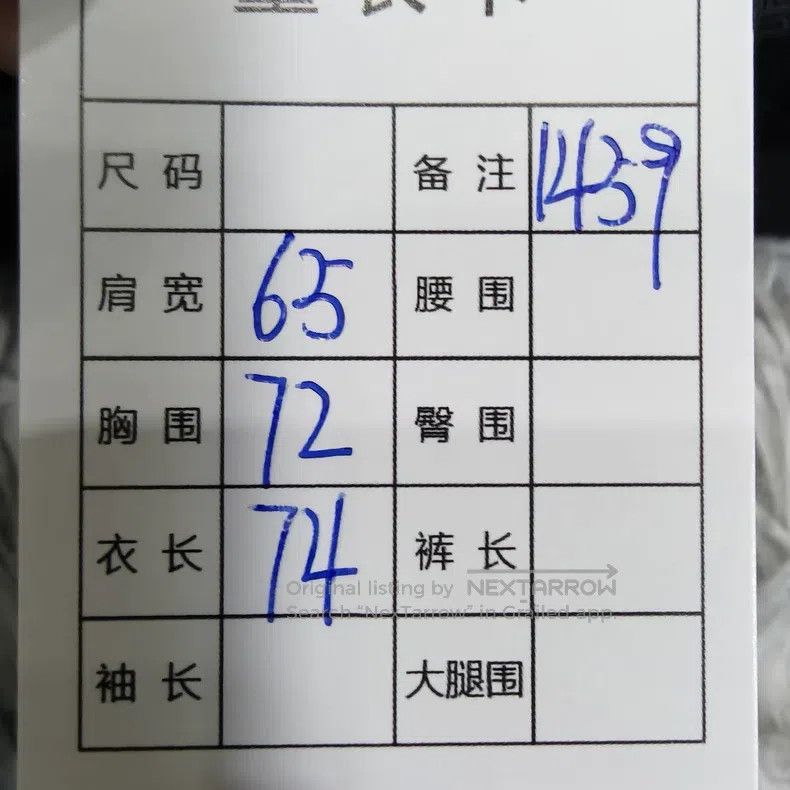 尺码 备注 1459
肩宽 65 腰围
胸围 72 臀围
衣长 74 裤长
Original listing by NEXTARROW
Search "NexTarrow" in Grailed app.
袖长 大腿围